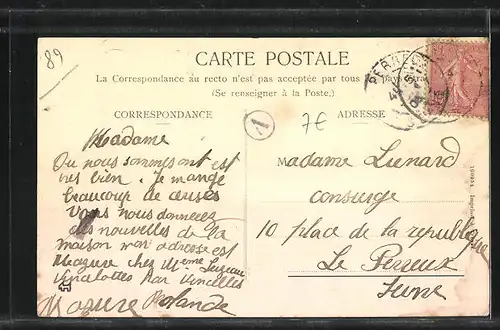 89
CARTE POSTALE
La Correspondance au recto n'est pas acceptée par tous pays
(Se renseigner à la Poste.)
CORRESPONDANCE
ADRESSE
1
7€
Madame
Ou nous sommes ont est
tres bien. Je mange
beaucoup de cerises
Vous nous donnerez
des nouvelles de
maison mon adresse est
Mazure chez Mme
par Vincelles
Mazure Rolande
Madame Lienard
consierge
10 place de la republique
Le Perreux
Seine